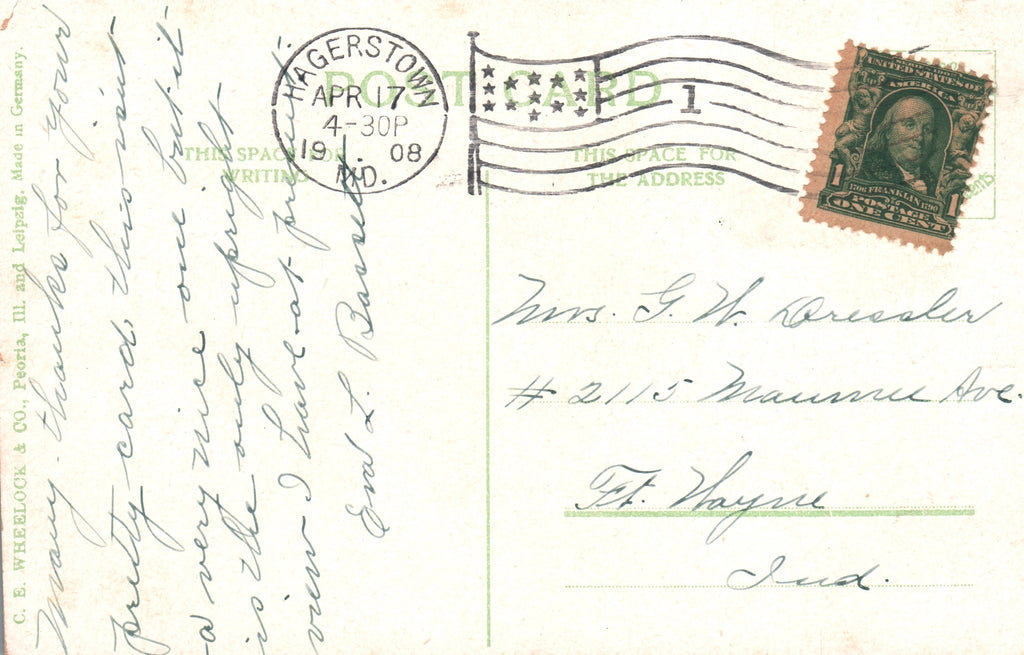 C. E. WHEELOCK & CO., Peoria, Ill. and Leipzig. Made in Germany.
POST CARD
THIS SPACE FOR
WRITING
THIS SPACE FOR
THE ADDRESS
HAGERSTOWN
APR 17
4-30P
19 08
MD.
1
UNITED STATES OF
AMERICA
1 1
1706 FRANKLIN 1790
POSTAGE
ONE CENT
Many thanks for your
pretty card, this isn't
a very nice one but it
is the only upright
view I have at present.
L.
Mrs. G. W. Dressler
# 2115 Maumee Ave.
Ft. Wayne
Ind.